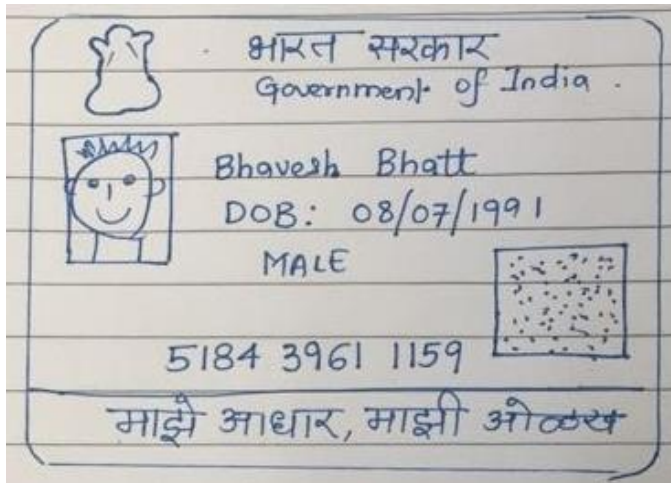 भारत सरकार
Government of India.
Bhavesh Bhatt
DOB: 08/07/1991
MALE
5184 3961 1159
माझे आधार, माझी ओळख